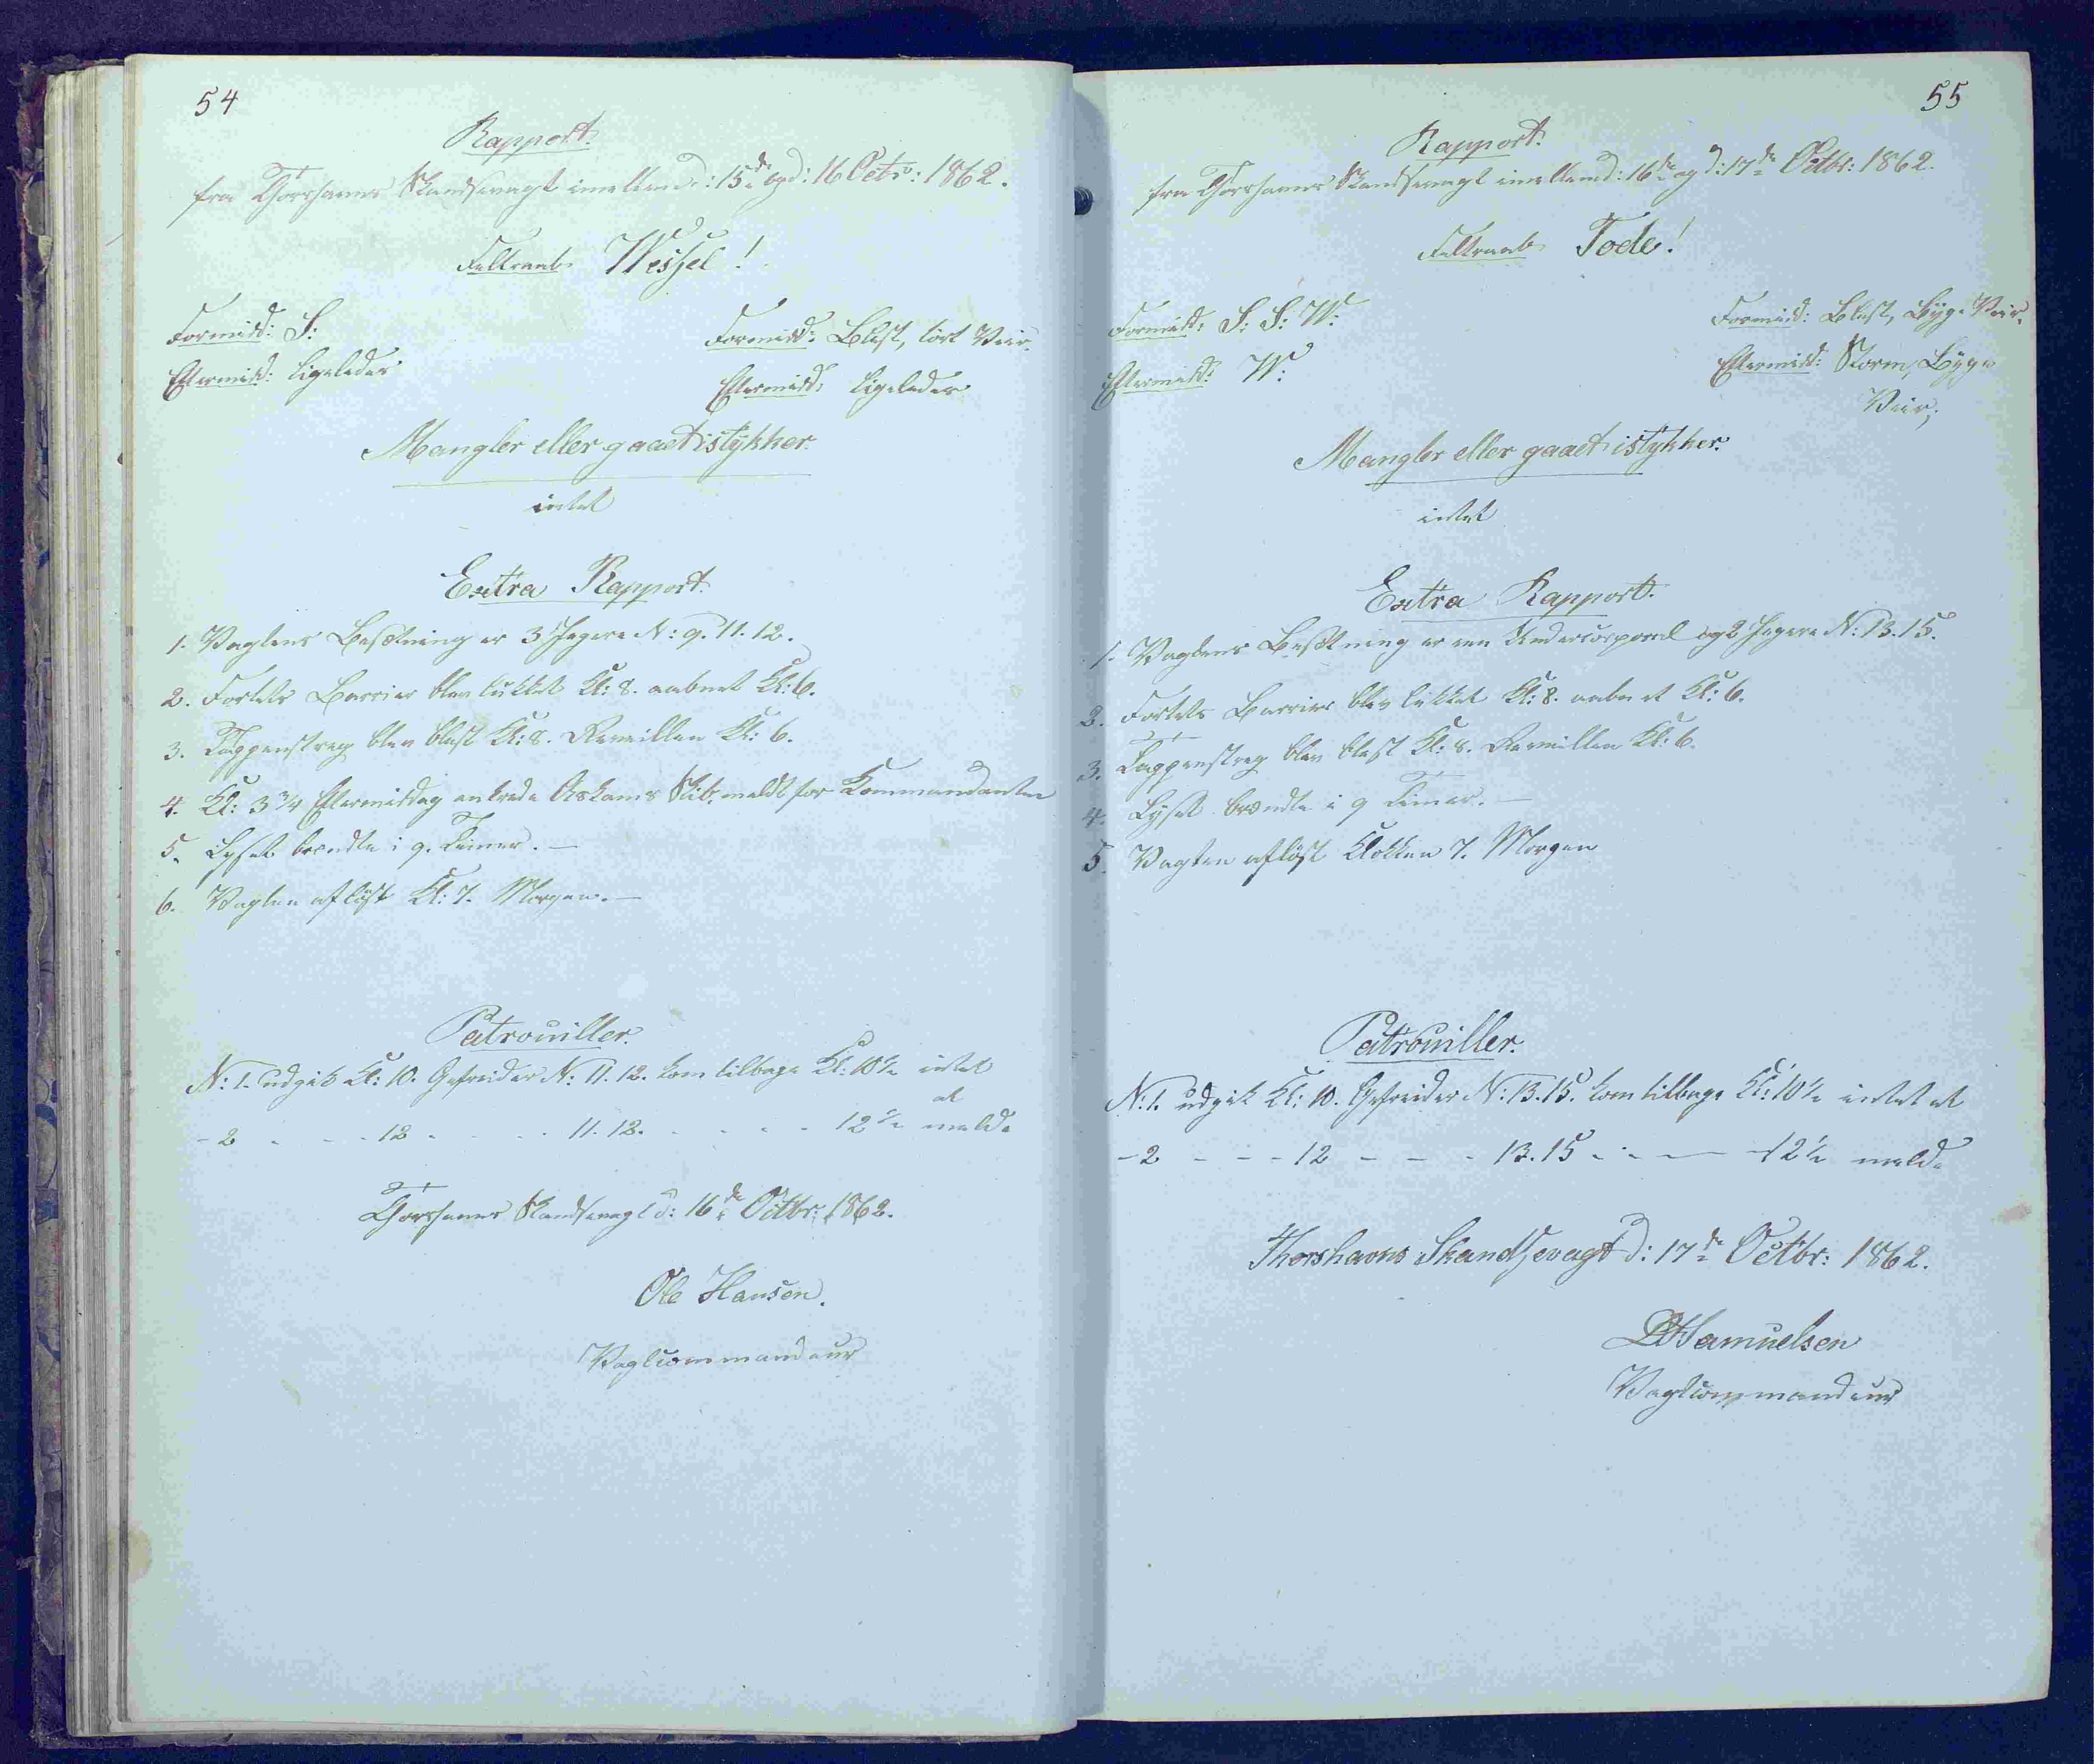 54
Rapport.
fra Thorshavns Skandsevagt imellem d: 15de og d: 16 Octbr: 1862.
Feltraab Wessel!
Formidd: S: Formidd: Blæst, tört Veir.
Eftermidd: ligeledes Eftermidd: ligeledes
Mangler eller gaaet istykker.
intet
Extra Rapport.
1. Vagtens Besætning er 3 Jægere N: 9. 11. 12.
2. Fortets Barrier blev lukket Kl: 8. aabnet Kl: 6.
3. Tappenstreg blev blæst Kl: 8. Reveillen Kl: 6.
4. Kl: 3 3/4 Eftermiddag ankrede Skib, meldt for Kommandanten
5. Lyset brændte i 9. Timer. —
6. Vagten aflöst Kl: 7. Morgen. —
Patrouiller.
N: 1. udgik Kl: 10. Gefreider N: 11. 12. kom tilbage Kl: 10 1/2 intet
at
- 2 - - - 12 - - - - 11. 12. - - - - 12 1/2 melde
Thorshavns Skandsevagt d: 16de Octbr: 1862.
Ole Hansen.
Vagtcommandeur
55
Rapport.
fra Thorshavns Skandsevagt imellem d: 16de og d: 17de Octbr: 1862.
Feltraab Tode!
Formidd: S: S: W: Formidd: Blæst, Byge Veir.
Eftermidd: W: Eftermidd: Storm, Byge
Veir,
Mangler eller gaaet istykker.
intet
Extra Rapport.
1. Vagtens Besætning er en Undercorporal og 2 Jægere N: 13. 15.
2. Fortets Barrier blev lukket Kl: 8. aabnet Kl: 6.
3. Tappenstreg blev blæst Kl: 8. Reveillen Kl: 6.
4. Lyset brændte i 9 Timer. —
5. Vagten aflöst Klokken 7. Morgen
Patrouiller.
N: 1. udgik Kl: 10. Gefreider N: 13. 15. kom tilbage Kl: 10 1/2 intet at
- 2 - - - 12 - - - 13. 15 - - — 12 1/2 melde
Thorshavns Skandsevagt d: 17de Octbr: 1862.
Samuelsen
Vagtcommandeur